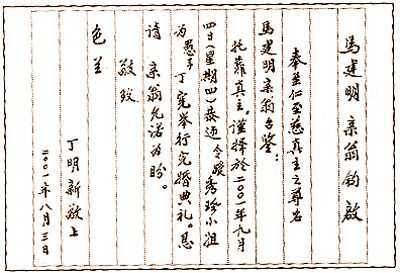 馬建明 亲翁钧啟
奉至仁至慈真主之尊名
馬建明亲翁台鉴:
托靠真主,谨择於二〇〇一年九月
四日(星期四)恭迎令嫒秀珍小姐
为愚子丁宪举行完婚典礼。恳
请 亲翁允诺为盼。
敬致
色兰
丁明新敬上
二〇〇一年八月三日